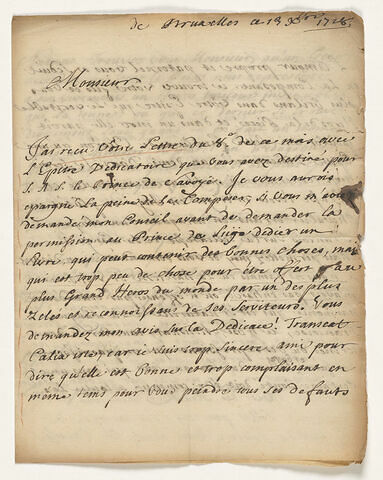 de Bruxelles ce 13 Xbre 1728.
Monsieur
J'ai recu Vôtre Lettre du 8e. de ce mois avec
l'Epitre Dedicatoire que vous avez destiné pour
S. A. S. le Prince de Savoye. Je vous aurois
epargné la peine de la Composer, si vous m'aviez
demandé mon Conseil avant de demander la
permission au Prince de luy dedier un
livre qui peut contenir des bonnes choses, mais
qui est trop peu de chose pour être offert au
plus Grand Heros du monde par un des plus
Zeles et reconnoissans de ses Serviteurs. Vous
demandez mon avis sur la Dedicace! Transeat
Calix iste, car je suis trop sincere ami pour
dire qu'elle est bonne et trop complaisant en
même tems pour vous peindre tous ses defauts